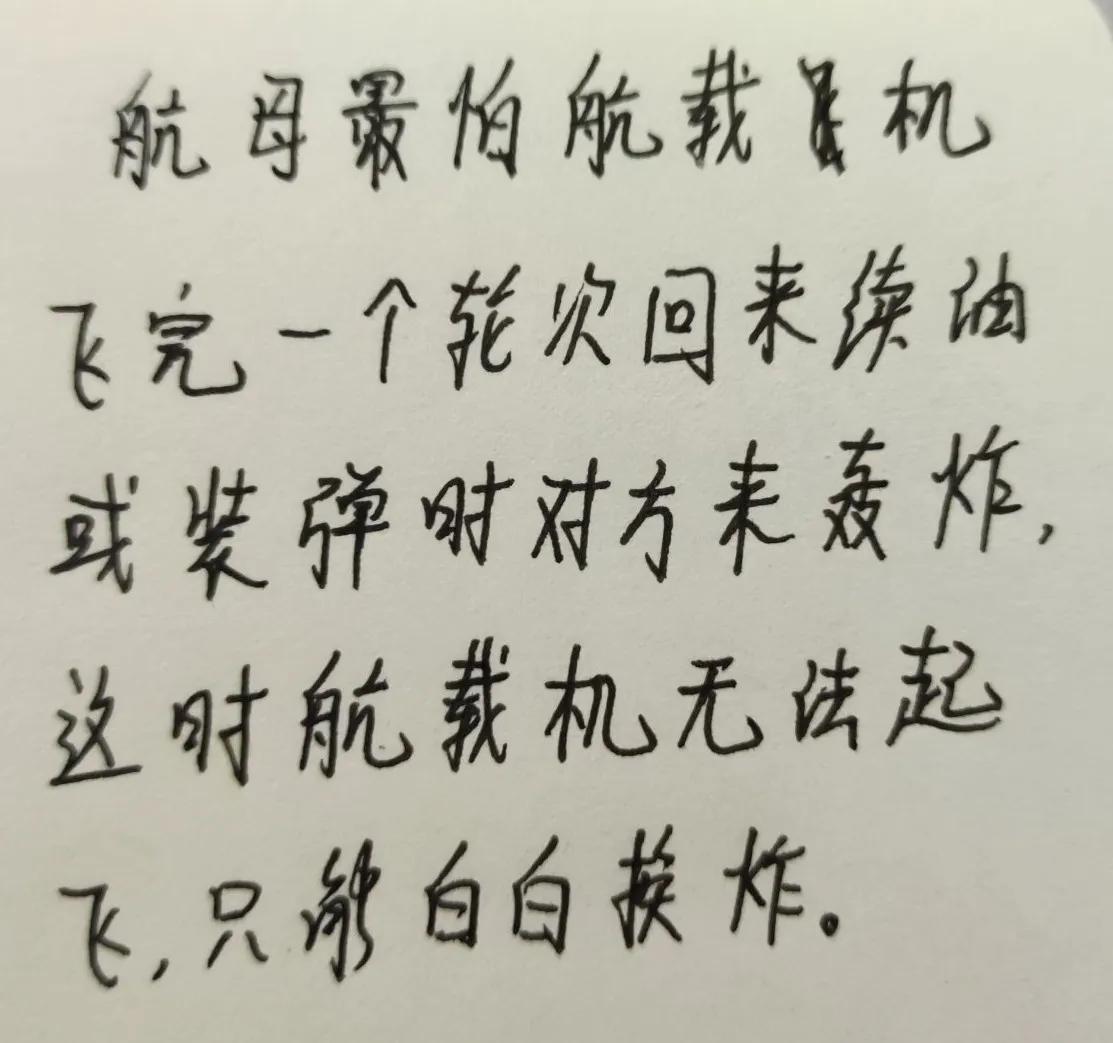 航母最怕航载机
飞完一个轮次回来续油
或装弹时对方来轰炸,
这时航载机无法起
飞,只能白白挨炸。